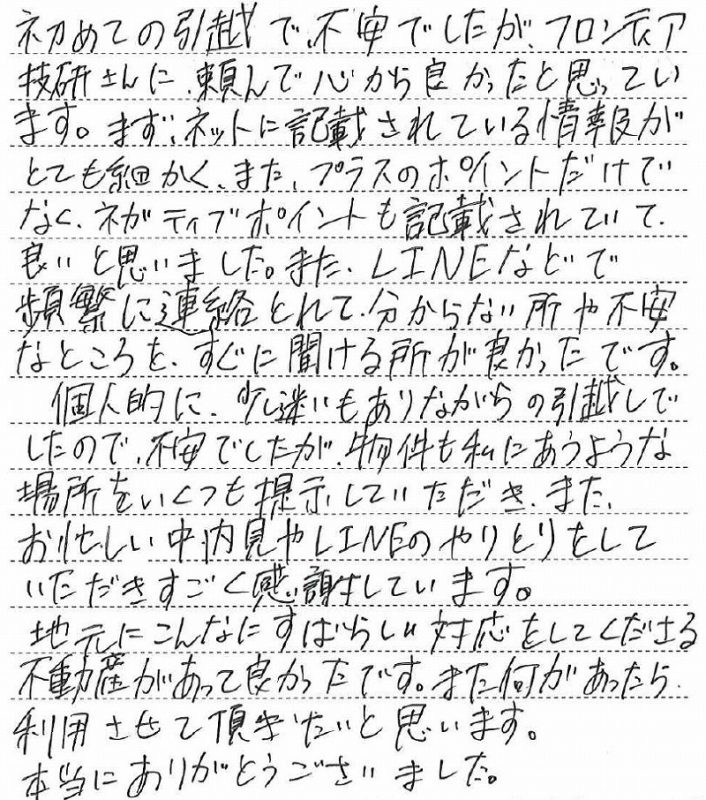 初めての引越で、不安でしたが、フロンティア
技研さんに、頼んで心から良かったと思ってい
ます。まず、ネットに記載されている情報が
とても細かく、また、プラスのポイントだけで
なく、ネガティブポイントも記載されていて、
良いと思いました。また、LINEなどで
頻繁に連絡とれて、分からない所や不安
なところを、すぐに聞ける所が良かったです。
個人的に、少し迷いもありながらの引越しで
したので、不安でしたが、物件も私にあうような
場所をいくつも提示していただき、また、
お忙しい中内見やLINEのやりとりをして
いただきすごく感謝しています。
地元にこんなにすばらしい対応をしてくださる
不動産があって良かったです。また何があったら、
利用させて頂きたいと思います。
本当にありがとうございました。